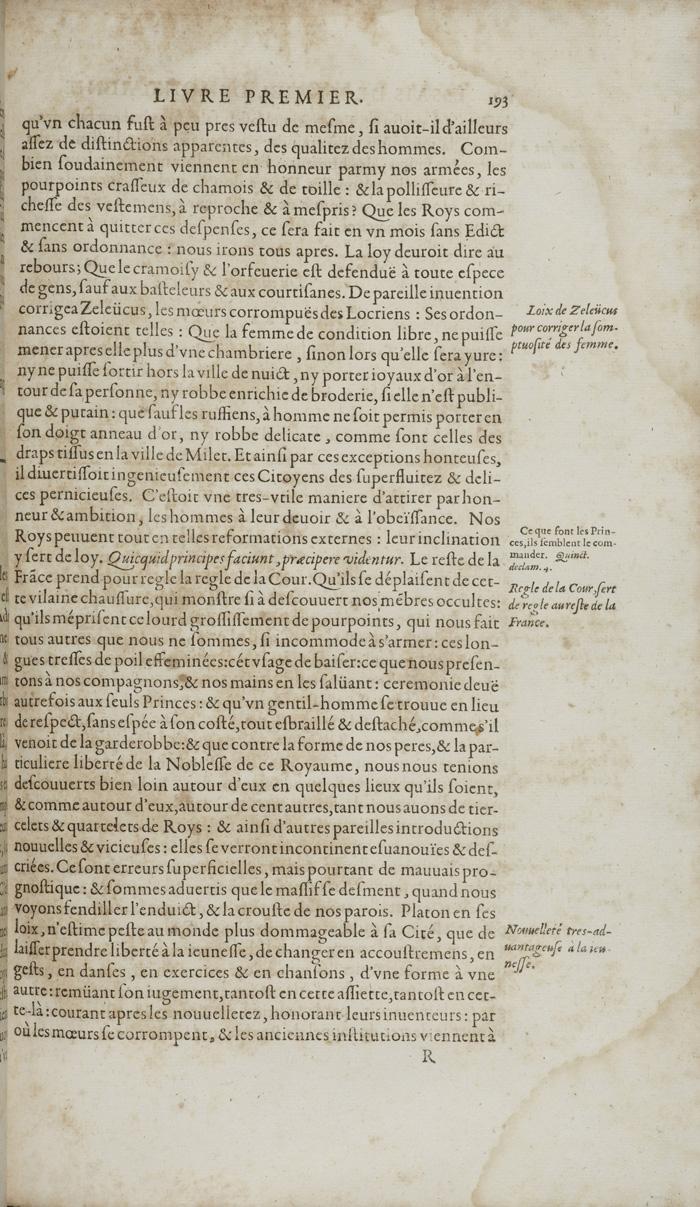 LIVRE PREMIER. 193
qu'vn chacun fuſt à peu pres veſtu de meſme, ſi auoit-il d'ailleurs
aſſez de diſtinctions apparentes, des qualitez des hommes. Com-
bien ſoudainement viennent en honneur parmy nos armées, les
pourpoints craſſeux de chamois & de toille : & la polliſſeure & ri-
cheſſe des veſtemens, à reproche & à meſpris? Que les Roys com-
mencent à quitter ces deſpenſes, ce ſera fait en vn mois ſans Edict
& ſans ordonnance : nous irons tous apres. La loy deuroit dire au
rebours; Que le cramoiſy & l'orfeuerie eſt defenduë à toute eſpece
de gens, ſauf aux baſteleurs & aux courtiſanes. De pareille inuention
corrigea Zeleücus, les mœurs corrompuës des Locriens : Ses ordon-
nances eſtoient telles : Que la femme de condition libre, ne puiſſe
mener apres elle plus d'vne chambriere, ſinon lors qu'elle ſera yure:
ny ne puiſſe ſortir hors la ville de nuict, ny porter ioyaux d'or à l'en-
tour de ſa perſonne, ny robbe enrichie de broderie, ſi elle n'eſt publi-
que & putain : que ſauf les ruffiens, à homme ne ſoit permis porter en
ſon doigt anneau d'or, ny robbe delicate, comme ſont celles des
draps tiſſus en la ville de Milet. Et ainſi par ces exceptions honteuſes,
il diuertiſſoit ingenieuſement ces Citoyens des ſuperfluitez & deli-
ces pernicieuſes. C'eſtoit vne tres-vtile maniere d'attirer par hon-
neur & ambition, les hommes à leur deuoir & à l'obeïſſance. Nos
Roys peuuent tout en telles reformations externes : leur inclination
y ſert de loy. Quicquid principes faciunt, præcipere videntur. Le reſte de la
Frãce prend pour regle la regle de la Cour. Qu'ils ſe déplaiſent de cet-
te vilaine chauſſure, qui monſtre ſi à deſcouuert nos mẽbres occultes:
qu'ils mépriſent ce lourd groſſiſſement de pourpoints, qui nous fait
tous autres que nous ne ſommes, ſi incommode à s'armer : ces lon-
gues treſſes de poil effeminées: cét vſage de baiſer: ce que nous preſen-
tons à nos compagnons, & nos mains en les ſalüant : ceremonie deuë
autrefois aux ſeuls Princes : & qu'vn gentil-homme ſe trouue en lieu
de reſpect, ſans eſpée à ſon coſté, tout eſbraillé & deſtaché, comme s'il
venoit de la garderobbe: & que contre la forme de nos peres, & la par-
ticuliere liberté de la Nobleſſe de ce Royaume, nous nous tenions
deſcouuerts bien loin autour d'eux en quelques lieux qu'ils ſoient,
& comme autour d'eux, autour de cent autres, tant nous auons de tier-
celets & quartelets de Roys : & ainſi d'autres pareilles introductions
nouuelles & vicieuſes : elles ſe verront incontinent eſuanouïes & deſ-
criées. Ce ſont erreurs ſuperficielles, mais pourtant de mauuais pro-
gnoſtique : & ſommes aduertis que le maſſif ſe deſment, quand nous
voyons fendiller l'enduict, & la crouſte de nos parois. Platon en ſes
loix, n'eſtime peſte au monde plus dommageable à ſa Cité, que de
laiſſer prendre liberté à la ieuneſſe, de changer en accouſtremens, en
geſts, en danſes, en exercices & en chanſons, d'vne forme à vne
autre : remüant ſon iugement, tantoſt en cette aſſiette, tantoſt en cet-
te-là : courant apres les nouuelletez, honorant leurs inuenteurs : par
où les mœurs ſe corrompent, & les anciennes inſtitutions viennent à
R
Loix de Zeleücus
pour corriger la ſom-
ptuoſité des femme.
Ce que font les Prin-
ces, ils ſemblent le com-
mander. Quinct.
declam. 4.
Regle de la Cour, ſert
de regle au reſte de la
France.
Nouuelleté tres-ad-
uantageuſe à la ieu-
neſſe.